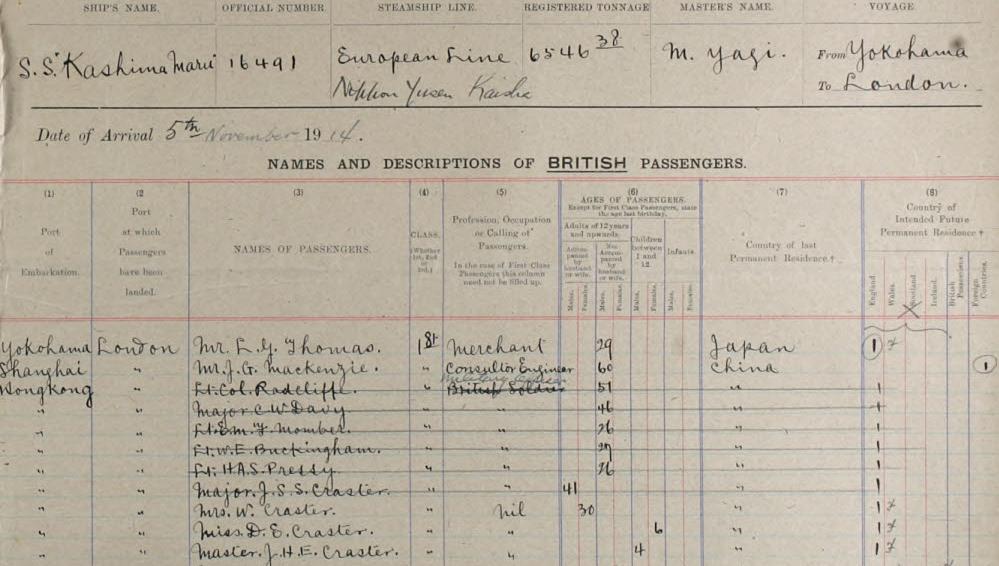 SHIP'S NAME. OFFICIAL NUMBER. STEAMSHIP LINE. REGISTERED TONNAGE MASTER'S NAME. VOYAGE
S.S. Kashima Maru 16491 European Line 6546 38 M. Yagi. From Yokohama
Nippon Yusen Kaisha To London.
Date of Arrival 5th November 1914.
NAMES AND DESCRIPTIONS OF BRITISH PASSENGERS.
(1) (2 (3) (4) (5) (6) (7) (8)
Port of Embarkation.
Port at which Passengers have been landed.
NAMES OF PASSENGERS.
CLASS. (Whether 1st, 2nd or 3rd.)
Profession, Occupation or Calling of Passengers.
In the case of First Class Passengers this column need not be filled up.
AGES OF PASSENGERS.
Except for First Class Passengers, state the age last birthday.
Adults of 12 years and upwards.
Accompanied by husband or wife.
Not Accompanied by husband or wife.
Children between 1 and 12.
Infants.
Males. Females. Males. Females. Males. Females. Males. Females.
Country of last Permanent Residence.†
Country of Intended Future Permanent Residence.†
England Wales. Scotland Ireland. British Possessions. Foreign Countries.
Yokohama London Mr. L. G. Thomas. 1st Merchant 29 Japan 1
Shanghai " Mr. J. G. Mackenzie. " Consultor Engineer 60 China 1
Hongkong " Lt. Col. Radcliffe. " British Soldier 51 " 1
" " Major C W Davy " " 46 " 1
" " Lt. E. M. F. Momber. " " 26 " 1
" " Lt. W. E. Buckingham. " " 27 " 1
" " Lt. H A S. Pressy " " 26 " 1
" " Major. J. S. S. Craster. " " 41 " 1
" " Mrs. W. Craster. " nil 30 " 1
" " Miss. D. E. Craster. " " 6 " 1
" " Master. J. H. E. Craster. " " 4 " 1